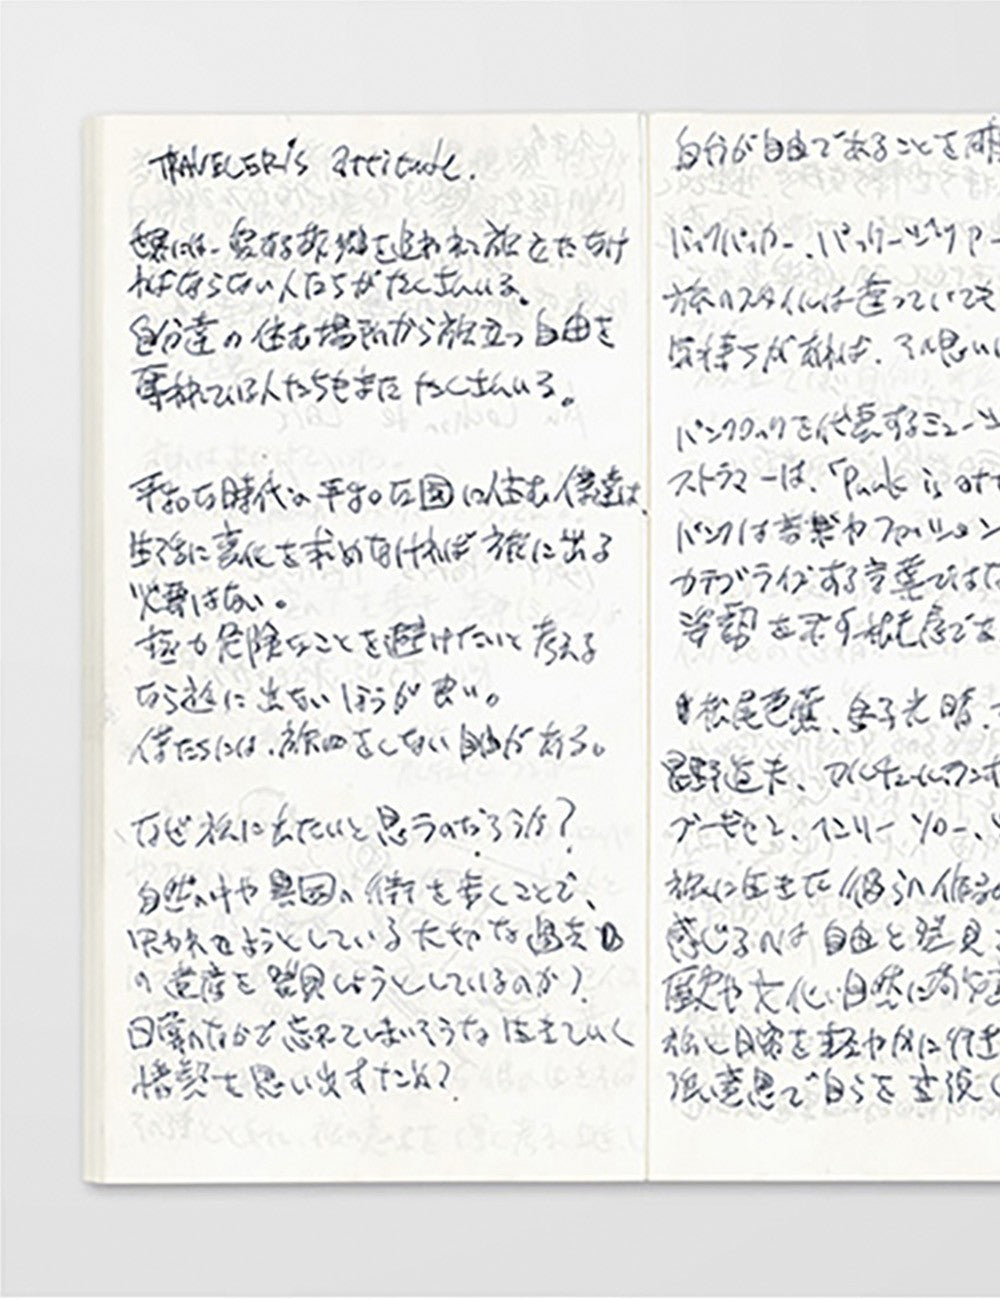 TRAVELER's attitude.
世界には、愛する故郷を追われて旅立たなけ
ればならない人たちがたくさんいる。
自分達の住む場所から旅立つ自由を
奪われている人たちもまたたくさんいる。
平和な時代の平和な国に住む僕達は、
生活に変化を求めなければ旅に出る
必要はない。
極力危険なことを避けたいと考える
なら旅に出ないほうが良い。
僕たちには、旅をしない自由がある。
なぜ旅に出たいと思うのだろうか?
自然の中や異国の街を歩くことで、
失われようとしている大切な過去
の遺産を発見しようとしているのか?
日常のなかで忘れてしまいそうな生きていく
情熱を思い出すためか?
自分が自由であることを
バックパッカー、パッケージツアー
旅のスタイルは違っていても
気持ちがあれば、
パンクロックを代表するミュージ
ストラマーは、「Punk is att
パンクは音楽やファッション
カテゴライズする言葉ではな
姿勢
松尾芭蕉、金子光晴、
星野道夫、アルチュール・ランボ
ブーギセン、ヘンリー・ソロー、
旅に生きた彼らの作品
感じるのは自由と発見
歴史や文化、自然に
旅と日常を軽やかに行き
強い意思で自らを